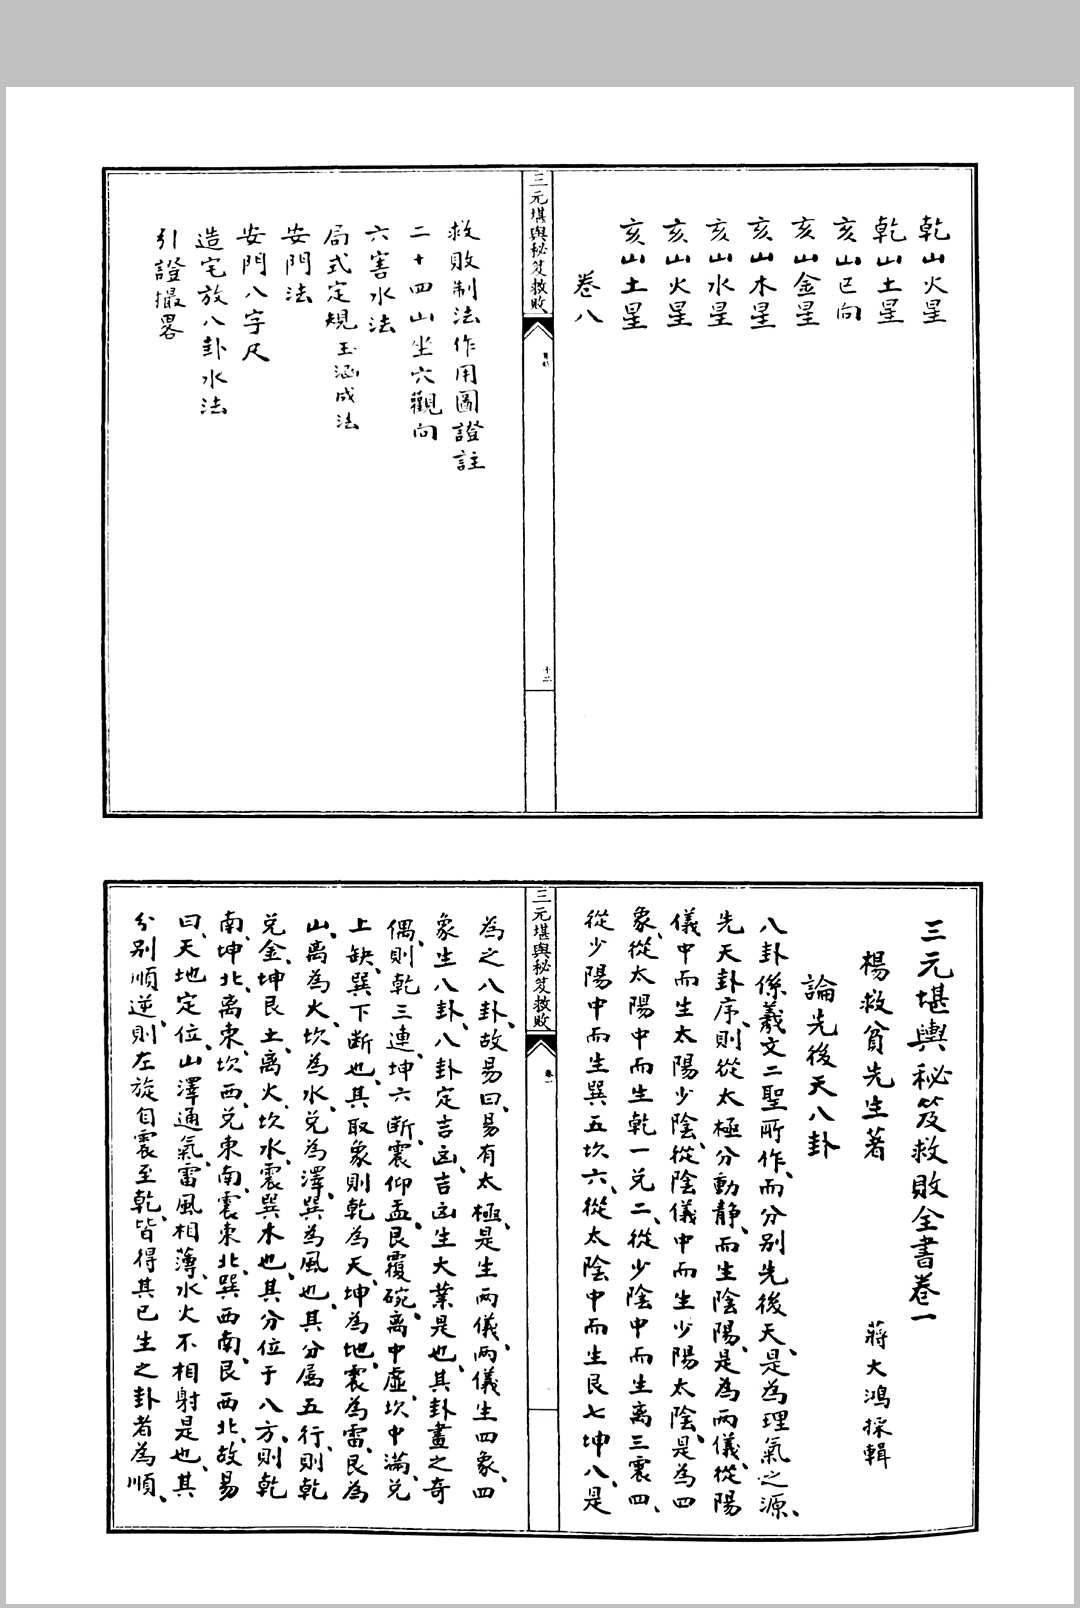 乾山火星
乾山土星
亥山巳向
亥山金星
亥山木星
亥山水星
亥山火星
亥山土星
卷八
三元堪輿秘笈救敗
十二
救敗制法作用圖證註
二十四山坐穴觀向
六害水法
局式定規玉涵成法
安門法
安門八字尺
造宅放八卦水法
引證撮畧
三元堪輿秘笈救敗全書卷一
楊救貧先生著
蔣大鴻採輯
論先後天八卦
八卦係羲文二聖所作、而分別先後天、是為理氣之源、
先天卦序、則從太極分動靜、而生陰陽、是為兩儀、從陽
儀中而生太陽少陰、從陰儀中而生少陽太陰、是為四
象、從太陽中而生乾一兌二、從少陰中而生離三震四、
從少陽中而生巽五坎六、從太陰中而生艮七坤八、是
三元堪輿秘笈救敗
卷一
為之八卦、故易曰、易有太極、是生兩儀、兩儀生四象、四
象生八卦、八卦定吉凶、吉凶生大業是也、其卦畫之奇
偶、則乾三連、坤六斷、震仰盂、艮覆碗、離中虛、坎中滿、兌
上缺、巽下斷也、其取象則乾為天、坤為地、震為雷、艮為
山、离為火、坎為水、兌為澤、巽為風也、其分屬五行、則乾
兌金、坤艮土、离火、坎水、震巽木也、其分位于八方、則乾
南、坤北、离東、坎西、兌東南、震東北、巽西南、艮西北、故易
曰、天地定位、山澤通氣、雷風相薄、水火不相射是也、其
分別順逆、則左旋自震至乾、皆得其已生之卦者為順、